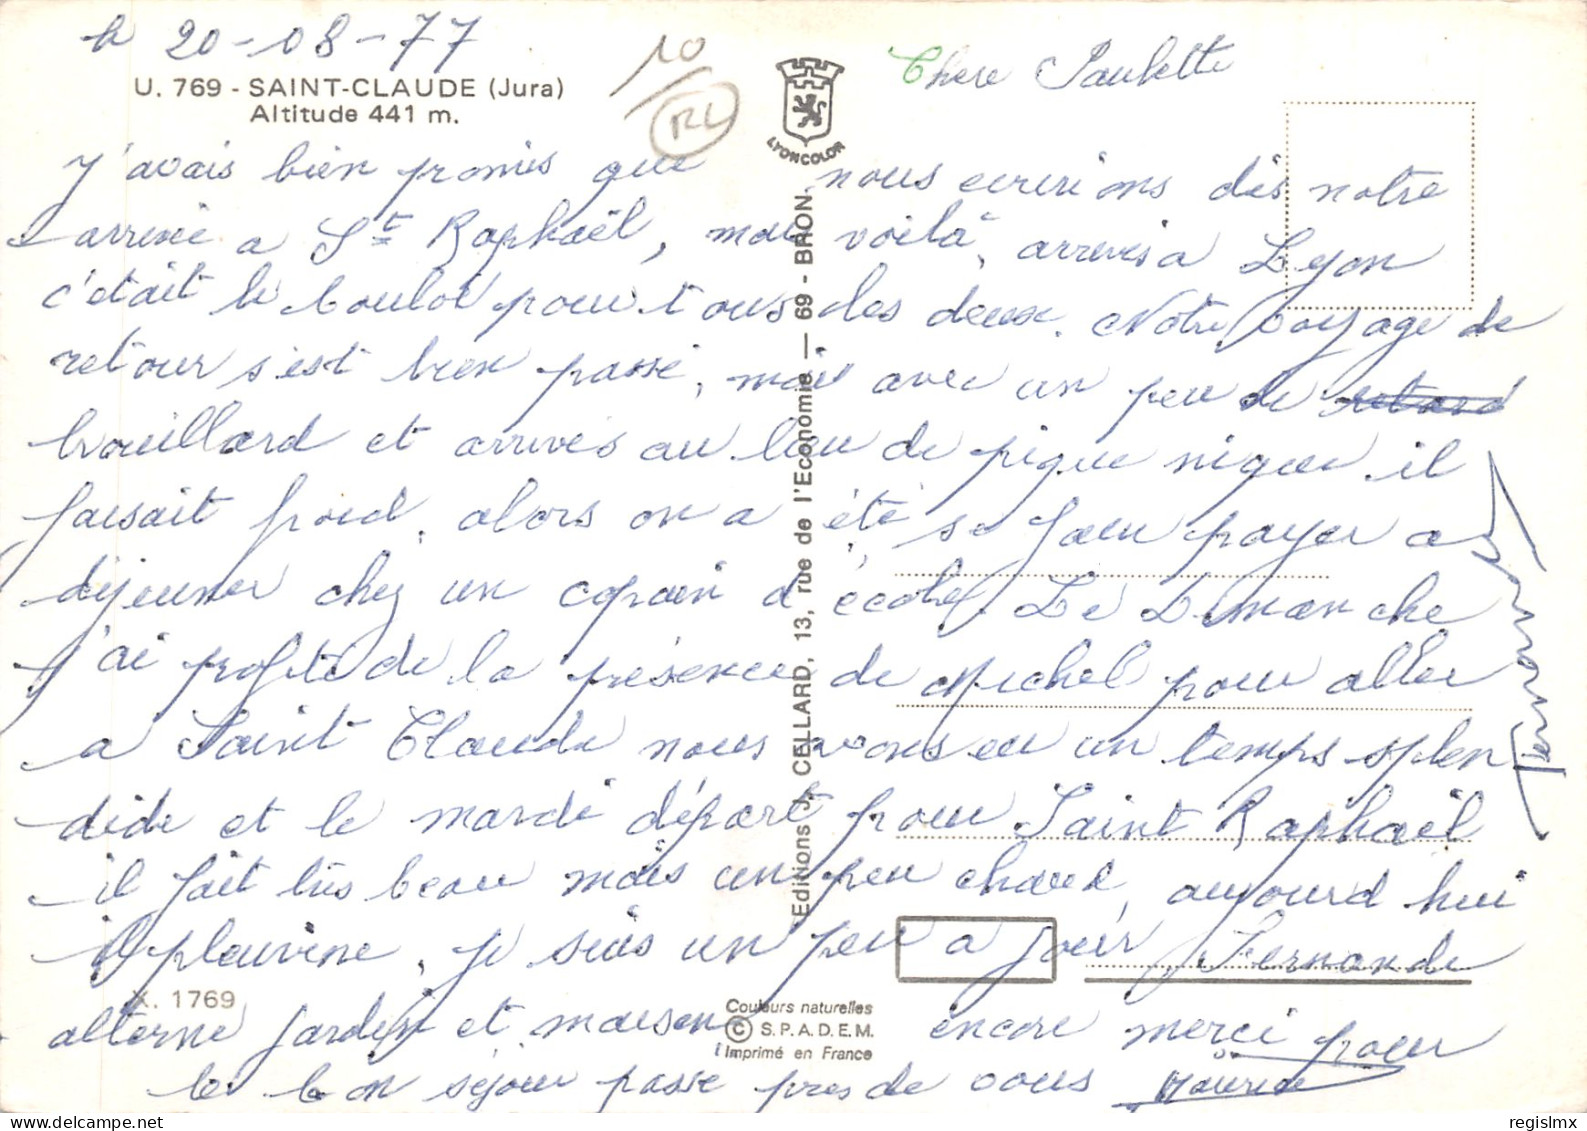 le 20-08-77
Chere Paulette
10
RL
U. 769 - SAINT-CLAUDE (Jura)
Altitude 441 m.
LYONCOLOR
J'avais bien promis que nous ecririons dès notre
arrivée a St Raphaël, mais voilà, arrives a Lyon
c'était le boulot pour tous les deux. Notre voyage de
retour s'est bien passé, mais avec un peu de retard
brouillard et arrivés au lieu de pique nique il
faisait froid, alors on a été se faire payer a
déjeuner chez un copain d'école. Le Dimanche
j'ai profité de la présence de Michel pour aller
a Saint Claude nous avons eu un temps splen
dide et le mardi départ pour Saint Raphaël
il fait très beau mais un peu chaud, aujourd hui
il pleuvine, je suis un peu a jour Fernande
alterne jardin et maison encore merci pour
le bon séjour passe pres de vous Maurice
Fernande
Editions J. CELLARD, 13, rue de l'Economie — 69 - BRON
X. 1769
Couleurs naturelles
© S.P.A.D.E.M.
Imprimé en France
regislmx